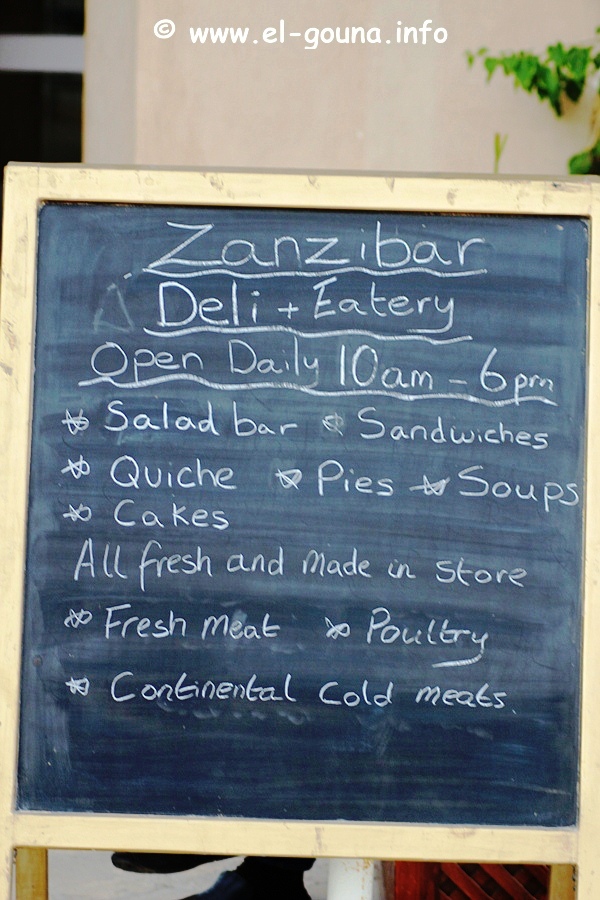 © www.el-gouna.info
Zanzibar
Deli + Eatery
Open Daily 10am - 6pm
* Salad bar * Sandwiches
* Quiche * Pies * Soups
* Cakes
All fresh and made in store
* Fresh meat * Poultry
* Continental cold meats.